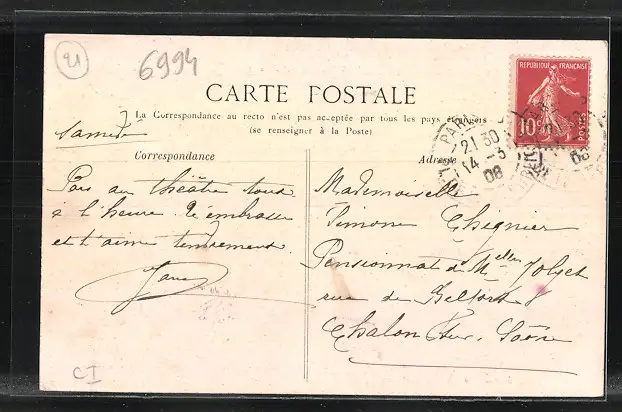 21
6994
CARTE POSTALE
La Correspondance au recto n'est pas acceptée par tous les pays étrangers
(se renseigner à la Poste)
Samedi
Correspondance
Adresse
RÉPUBLIQUE FRANÇAISE
10
POSTES
PARIS
21 30
14 - 3
08
au théâtre tout
à l'heure. T'embrasse
et t'aime tendrement
Mademoiselle
Simone Thignier
Pensionnat de Melles Jolyet
rue de Belfort
Chalon sur Saône
CI